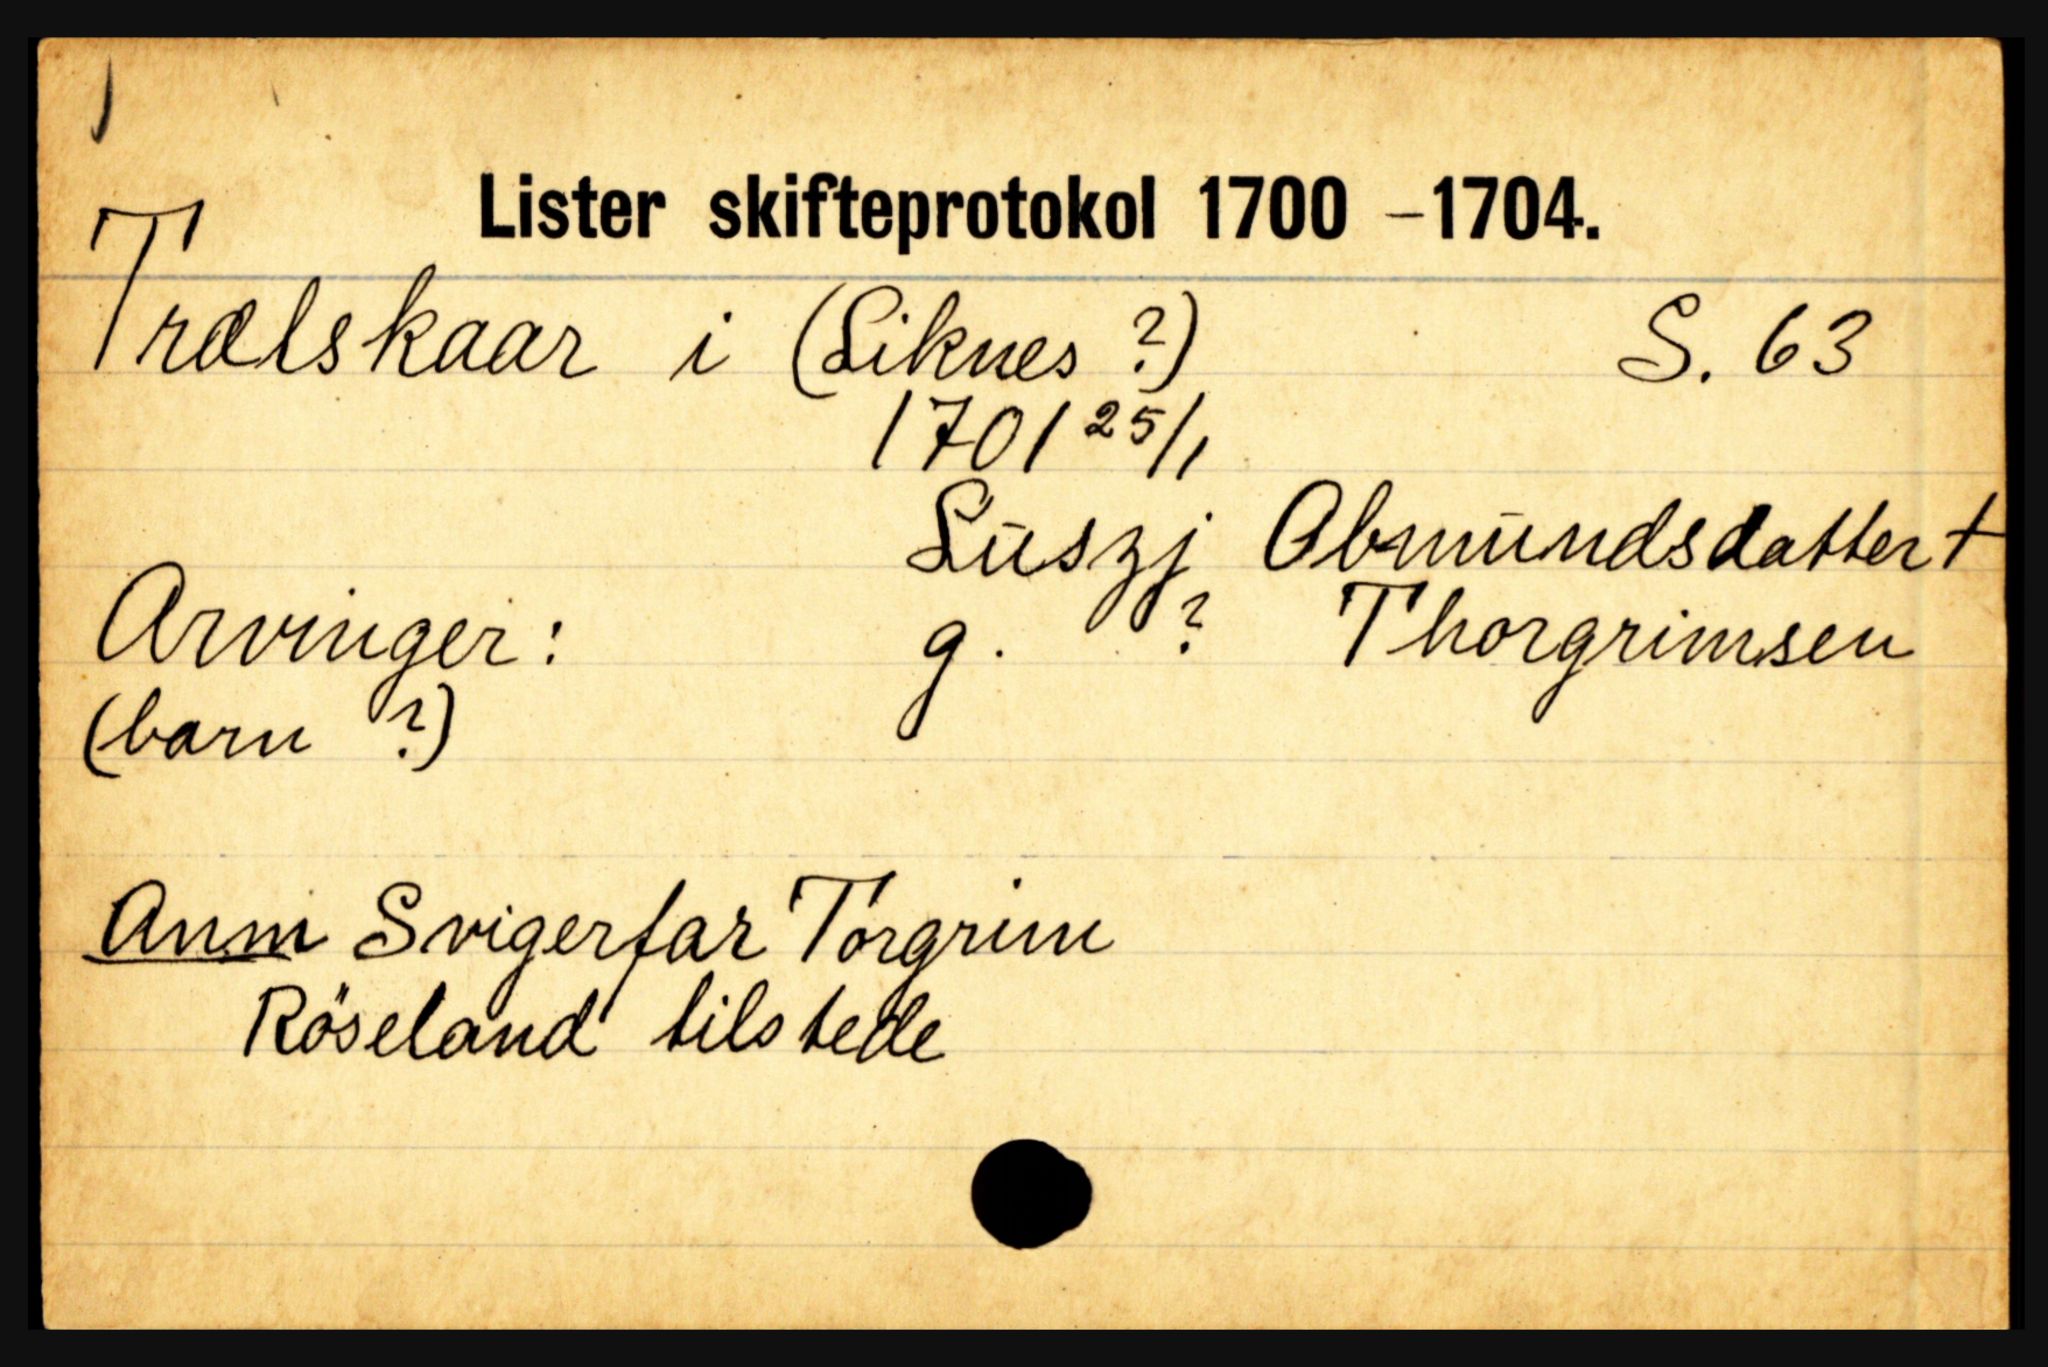 Lister skifteprotokol 1700 – 1704.
Trælskaar i (Liknes ?) S. 63
1701 25/1
Luszj Abmundsdatter +
Arvinger: g. ? Thorgrimsen
(barn ?)
Anm Svigerfar Torgrim
Röseland tilstede